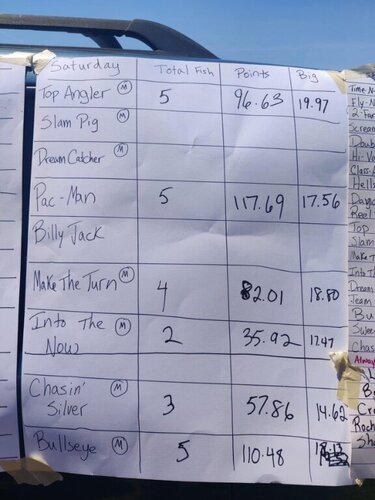 Saturday Total Fish Points Big
Top Angler M 5 96.63 19.97
Slam Pig M
Dream Catcher M
Pac-Man 5 117.69 17.56
Billy Jack
Make The Turn M 4 82.01 18.80
Into The M 2 35.92 17.47
Now
Chasin' 3 57.86 14.62
Silver
Bullseye M 5 110.48
Time
Fly-N
2-Far
Scream
Doub
Hi-Ve
Class
Hells
Reel
Top
Slam
Make T
Into Th
Dream
Team
Bu
Chas
Roch